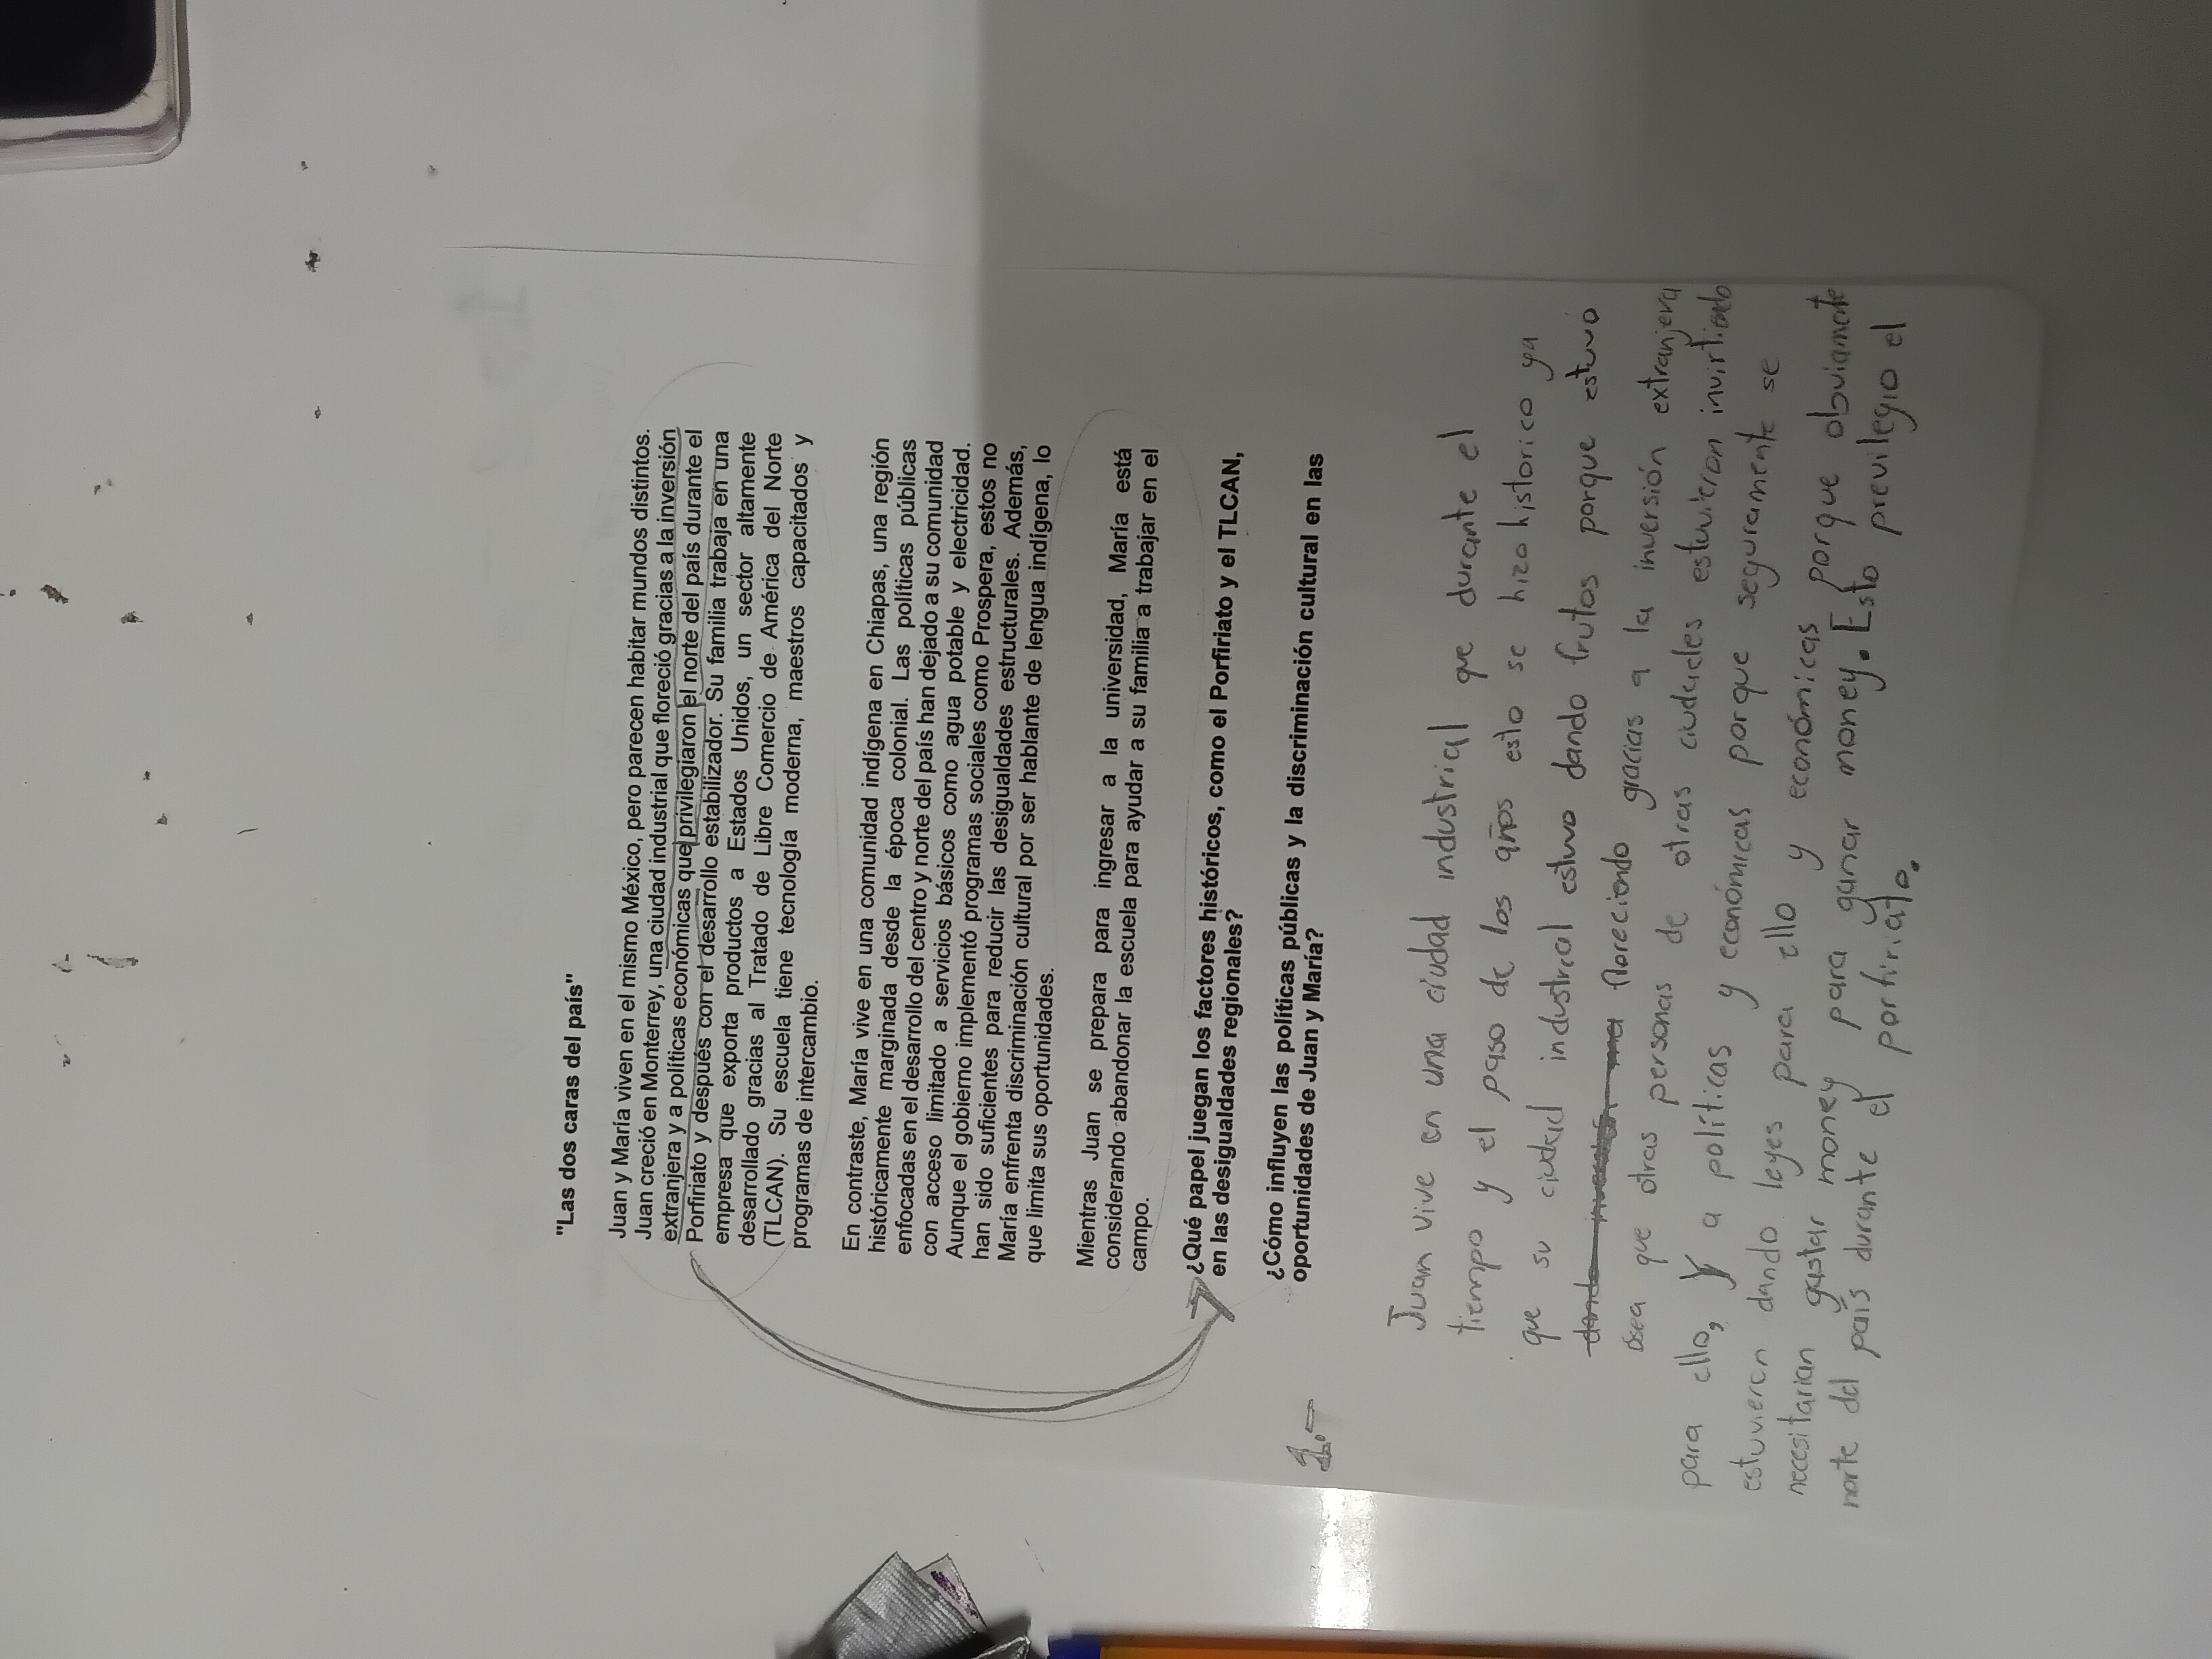 "Las dos caras del país"
Juan y María viven en el mismo México, pero parecen habitar mundos distintos.
Juan creció en Monterrey, una ciudad industrial que floreció gracias a la inversión
extranjera y a políticas económicas que privilegiaron el norte del país durante el
Porfiriato y después con el desarrollo estabilizador. Su familia trabaja en una
empresa que exporta productos a Estados Unidos, un sector altamente
desarrollado gracias al Tratado de Libre Comercio de América del Norte
(TLCAN). Su escuela tiene tecnología moderna, maestros capacitados y
programas de intercambio.
En contraste, María vive en una comunidad indígena en Chiapas, una región
históricamente marginada desde la época colonial. Las políticas públicas
enfocadas en el desarrollo del centro y norte del país han dejado a su comunidad
con acceso limitado a servicios básicos como agua potable y electricidad.
Aunque el gobierno implementó programas sociales como Prospera, estos no
han sido suficientes para reducir las desigualdades estructurales. Además,
María enfrenta discriminación cultural por ser hablante de lengua indígena, lo
que limita sus oportunidades.
Mientras Juan se prepara para ingresar a la universidad, María está
considerando abandonar la escuela para ayudar a su familia a trabajar en el
campo.
¿Qué papel juegan los factores históricos, como el Porfiriato y el TLCAN,
en las desigualdades regionales?
¿Cómo influyen las políticas públicas y la discriminación cultural en las
oportunidades de Juan y María?
Juan vive en una ciudad industrial que durante el
tiempo y el paso de los años esto se hizo historico ya
que su ciudad industrial estuvo dando frutos porque estuvo
dando floreciendo gracias a la inversión extranjera
osea que otras personas de otras ciudades estuvieron invirtiendo
para ello, y a políticas y económicas porque seguramente se
estuvieron dando leyes para ello y económicas porque obviamente
necesitarian gastar money para ganar money. Esto previlegio el
norte del país durante el porfiriato.